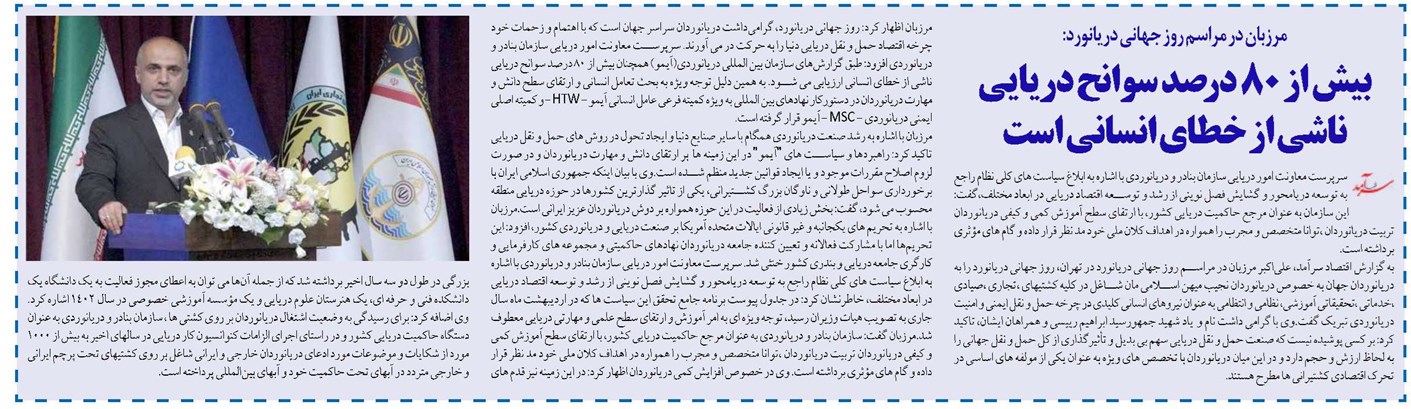 مرزبان در مراسم روز جهانی دریانورد:
بیش از ۸۰ درصد سوانح دریایی
ناشی از خطای انسانی است
سرآمد
سرپرست معاونت امور دریایی سازمان بنادر و دریانوردی با اشاره به ابلاغ سیاست های کلی نظام راجع
به توسعه دریامحور و گشایش فصل نوینی از رشد و توسعه اقتصاد دریایی در ابعاد مختلف، گفت:
این سازمان به عنوان مرجع حاکمیت دریایی کشور، با ارتقای سطح آموزش کمی و کیفی دریانوردان
تربیت دریانوردان ،توانا متخصص و مجرب را همواره در اهداف کلان ملی خود مد نظر قرار داده و گام های مؤثری
برداشته است.
به گزارش اقتصاد سرآمد، علی‌اکبر مرزبان در مراسم روز جهانی دریانورد در تهران، روز جهانی دریانورد را به
دریانوردان جهان به خصوص دریانوردان نجیب میهن اسلامی مان شاغل در کلیه کشتیهای ،تجاری ،صیادی
،خدماتی ،تحقیقاتی آموزشی، نظامی و انتظامی به عنوان نیروهای انسانی کلیدی در چرخه حمل و نقل ایمنی و امنیت
دریانوردی تبریک گفت.وی با گرامی داشت نام و یاد شهید جمهورسید ابراهیم رییسی و همراهان ایشان، تاکید
کرد: بر کسی پوشیده نیست که صنعت حمل و نقل دریایی سهم بی بدیل و تأثیرگذاری از کل حمل و نقل جهانی را
به لحاظ ارزش و حجم دارد و در این میان دریانوردان با تخصص های ویژه به عنوان یکی از مولفه های اساسی در
تحرک اقتصادی کشتیرانی ها مطرح هستند.
مرزبان اظهار کرد: روز جهانی دریانورد، گرامی‌داشت دریانوردان سراسر جهان است که با اهتمام و زحمات خود
چرخه اقتصاد حمل و نقل دریایی دنیا را به حرکت در می آورند. سرپرست معاونت امور دریایی سازمان بنادر و
دریانوردی افزود: طبق گزارش‌های سازمان بین المللی دریانوردی(آیمو) همچنان بیش از ۸۰درصد سوانح دریایی
ناشی از خطای انسانی ارزیابی می شود. به همین دلیل توجه ویژه به بحث تعامل انسانی و ارتقای سطح دانش و
مهارت دریانوردان در دستورکار نهادهای بین المللی به ویژه کمیته فرعی عامل انسانی آیمو – HTW – و کمیته اصلی
ایمنی دریانوردی – MSC – آیمو قرار گرفته است.
مرزبان با اشاره به رشد صنعت دریانوردی همگام با سایر صنایع دنیا و ایجاد تحول در روش های حمل و نقل دریایی
تاکید کرد: راهبردها و سیاست های "آیمو" در این زمینه ها بر ارتقای دانش و مهارت دریانوردان و در صورت
لزوم اصلاح مقررات موجود و یا ایجاد قوانین جدید منظم شده است.وی با بیان اینکه جمهوری اسلامی ایران با
برخورداری سواحل طولانی و ناوگان بزرگ کشتیرانی، یکی از تاثیر گذارترین کشورها در حوزه دریایی منطقه
محسوب می شود، گفت: بخش زیادی از فعالیت در این حوزه همواره بر دوش دریانوردان عزیز ایرانی است.مرزبان
با اشاره به تحریم های یکجانبه و غیر قانونی ایالات متحده آمریکا بر صنعت دریایی و دریانوردی کشور، افزود: این
تحریم‌ها اما با مشارکت فعالانه و تعیین کننده جامعه دریانوردان نهادهای حاکمیتی و مجموعه های کارفرمایی و
کارگری جامعه دریایی و بندری کشور خنثی شد. سرپرست معاونت امور دریایی سازمان بنادر و دریانوردی با اشاره
به ابلاغ سیاست های کلی نظام راجع به توسعه دریامحور و گشایش فصل نوینی از رشد و توسعه اقتصاد دریایی
در ابعاد مختلف، خاطرنشان کرد: در جدول پیوست برنامه جامع تحقق این سیاست ها که در اردیبهشت ماه سال
جاری به تصویب هیات وزیران رسید، توجه ویژه ای به امر آموزش و ارتقای سطح علمی و مهارتی دریایی معطوف
شد.مرزبان گفت: سازمان بنادر و دریانوردی به عنوان مرجع حاکمیت دریایی کشور، با ارتقای سطح آموزش کمی
و کیفی دریانوردان تربیت دریانوردان ،توانا متخصص و مجرب را همواره در اهداف کلان ملی خود مد نظر قرار
داده و گام های مؤثری برداشته است. وی در خصوص افزایش کمی دریانوردان اظهار کرد: در این زمینه نیز قدم های
بزرگی در طول دو سه سال اخیر برداشته شد که از جمله آن‌ها می توان به اعطای مجوز فعالیت به یک دانشگاه یک
دانشکده فنی و حرفه ای، یک هنرستان علوم دریایی و یک مؤسسه آموزشی خصوصی در سال ۱۴۰۲ اشاره کرد.
وی اضافه کرد: برای رسیدگی به وضعیت اشتغال دریانوردان بر روی کشتی ها ،سازمان بنادر و دریانوردی به عنوان
دستگاه حاکمیت دریایی کشور و در راستای اجرای الزامات کنوانسیون کار دریایی در سالهای اخیر به بیش از ۱۰۰۰
مورد از شکایات و موضوعات مورد ادعای دریانوردان خارجی و ایرانی شاغل بر روی کشتیهای تحت پرچم ایرانی
و خارجی متردد در آبهای تحت حاکمیت خود و آبهای بین‌المللی پرداخته است.